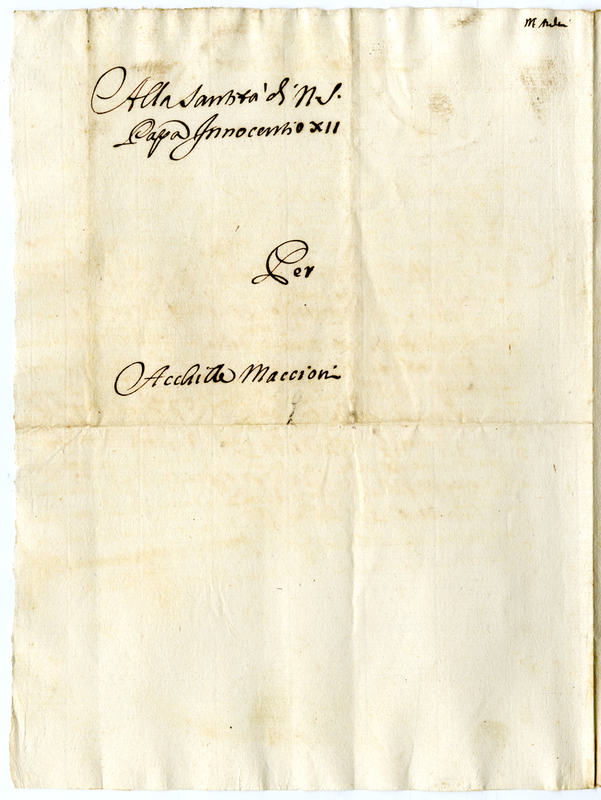 Alla Santità di N. S.
Papa Innocentio XII
Per
Acchille Maccioni